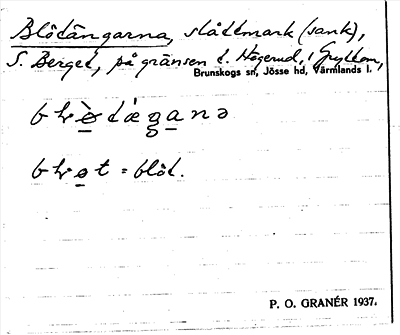 Blötängarna, slåttmark (sank),
S. Berget, på gränsen t. Högerud, i Gryttom,
Brunskogs sn, Jösse hd, Värmlands l.
= blöt.
P. O. GRANÉR 1937.